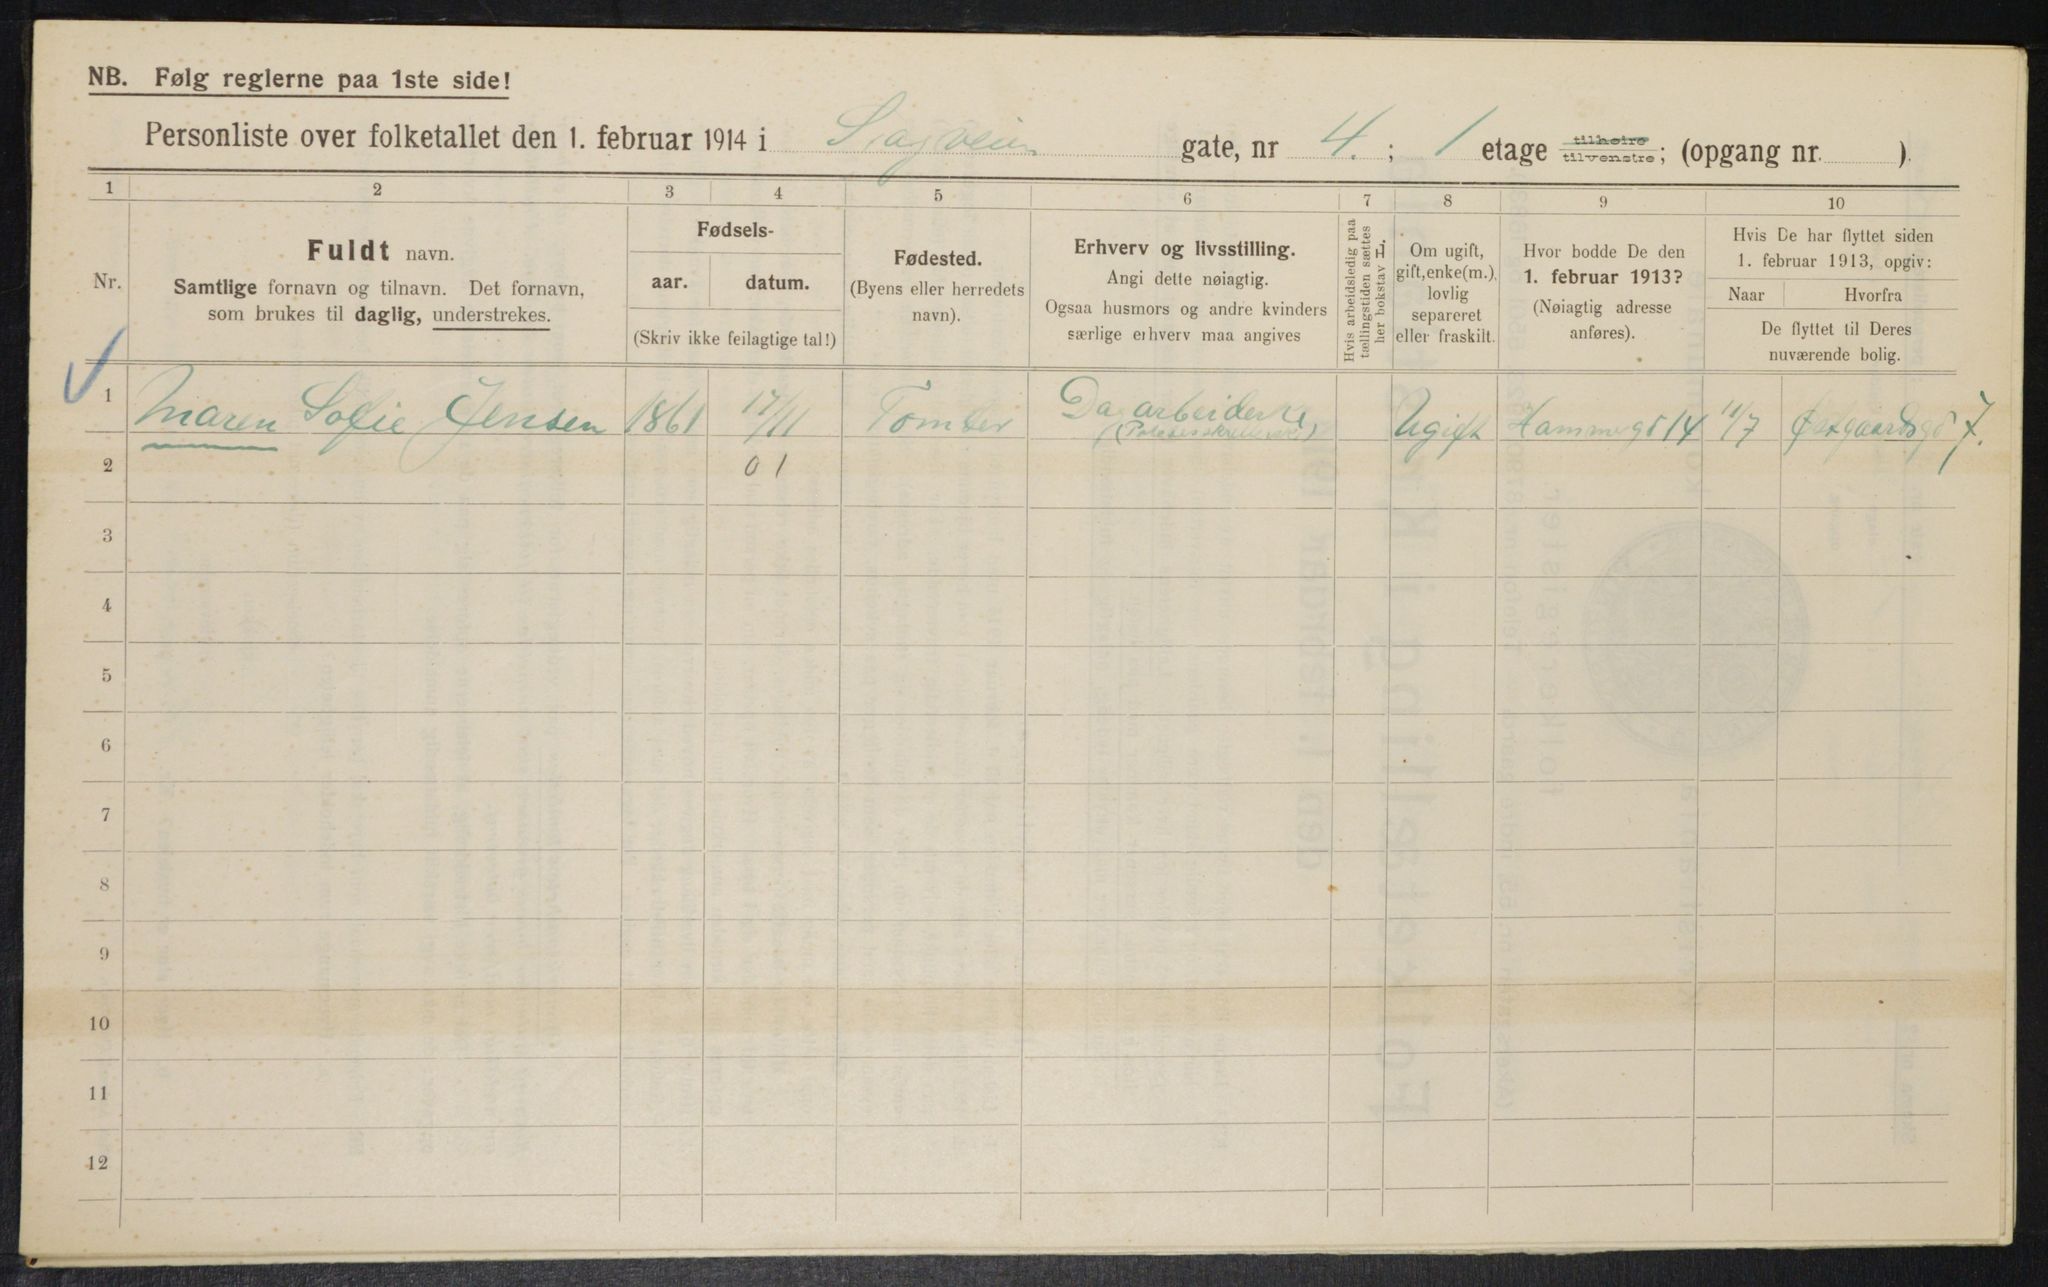 NB. Følg reglerne paa 1ste side!
Personliste over folketallet den 1. februar 1914 i Sagveien gate, nr 4. ; 1 etage tilhøire tilvenstre; (opgang nr. ).
1 2 3 4 5 6 7 8 9 10
Nr.
Fuldt navn.
Samtlige fornavn og tilnavn. Det fornavn,
som brukes til daglig, understrekes.
Fødsels-
aar. datum.
(Skriv ikke feilagtige tal!)
Fødested.
(Byens eller herredets
navn).
Erhverv og livsstilling.
Angi dette nøiagtig.
Ogsaa husmors og andre kvinders
særlige erhverv maa angives
Hvis arbeidsledig paa
tællingstiden sættes
her bokstav L.
Om ugift,
gift, enke(m.),
lovlig
separeret
eller fraskilt.
Hvor bodde De den
1. februar 1913?
(Nøiagtig adresse
anføres).
Hvis De har flyttet siden
1. februar 1913, opgiv:
Naar Hvorfra
De flyttet til Deres
nuværende bolig.
1 Maren Sofie Jensen 1861 17/11 Tomter Dagarbeiderske Ugift Hammergs 14 11/7 Østgaardsgs 7.
2 01
3
4
5
6
7
8
9
10
11
12